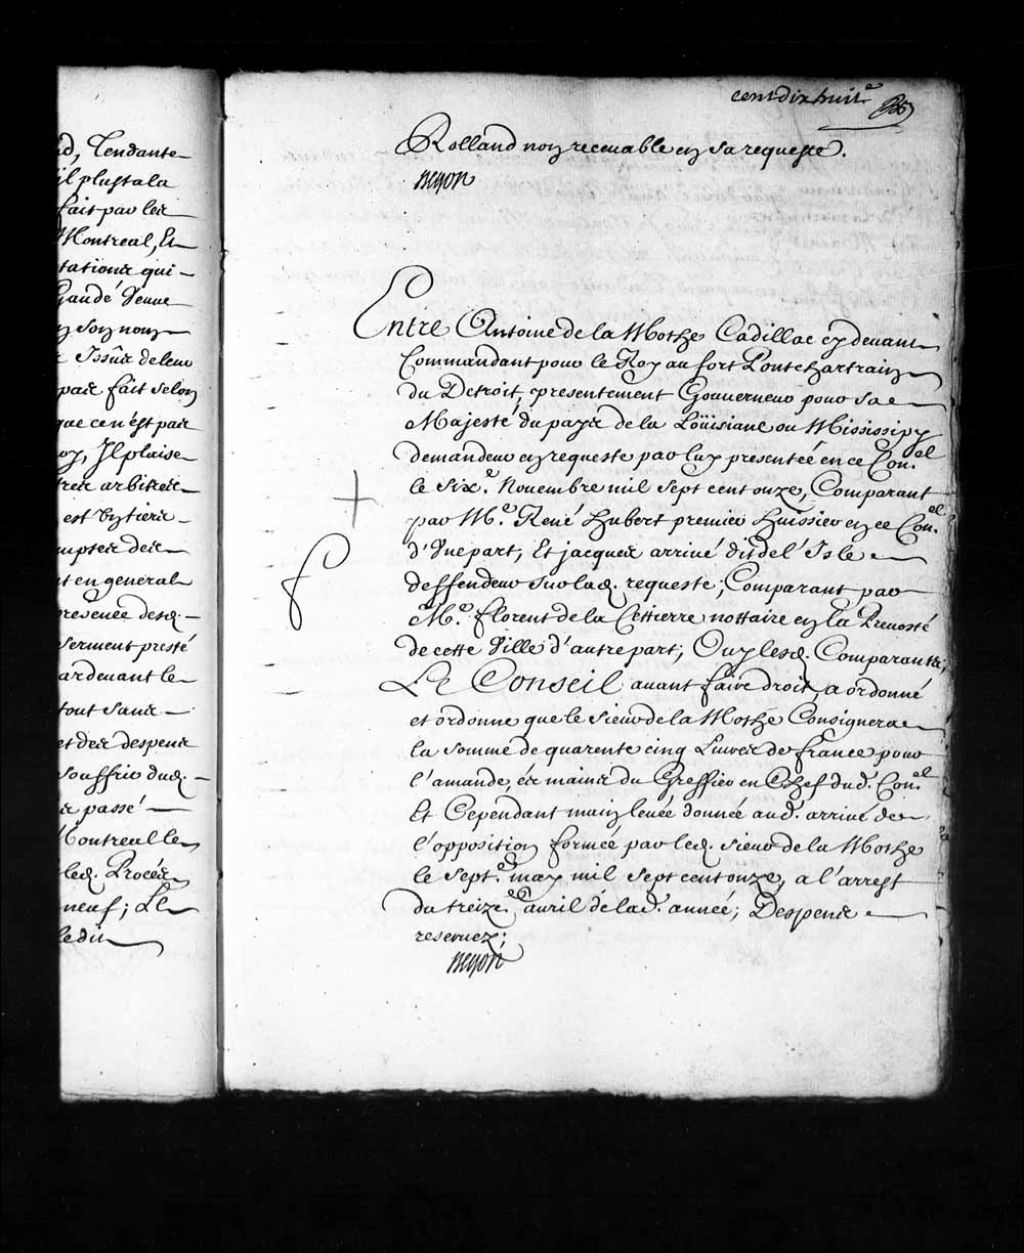 d, Tendante
il plust a la
fait par les
Montreal, Et
tations qui
Gaudé Veuve
en son nom
Issûs de leur
pas fait selon
que ce n'est pas
Il plaise
arbitres
est un tiers
en general
serment presté
ardeuant le
tout sans
et des despens
souffrir dud.
passé
Montreal le
led. Procés
neuf; Le
ledit
cent dix huit.e
Rolland non receuable en sa requeste.
negon
Entre Antoine de la Mothe Cadillac cy deuant
Commandant pour le Roy au fort Pontchartrain
du Detroit, presentement Gouuerneur pour sa
Majesté du pays de la Loüisiane ou Mississipy
demandeur en requeste par luy presentée en ce Con.el
le six.e Nouembre mil sept cent onze, Comparant
par M.e René hubert premier huissier en ce Con.el
d'Vne part, Et jacques arriué dit de l'Isle
deffendeur sur lad. requeste; Comparant par
M.e florent de la Cettierre nottaire en la Preuosté
de cette Ville d'autre part; Ouy lesd. Comparants;
Le Conseil auant faire droit, a ordonné
et ordonne que le sieur de la Mothe Consignera
la somme de quarente cinq Liures de france pour
l'amande, és mains du Greffier en Chef dud. Con.el
Et Cependant main leuée donnée aud. arriué de
l'opposition formée par led. sieur de la Mothe
le sept.e may mil sept cent onze, a l'arrest
du treize.e auril de lad. année; Despens
reseruez;
negon